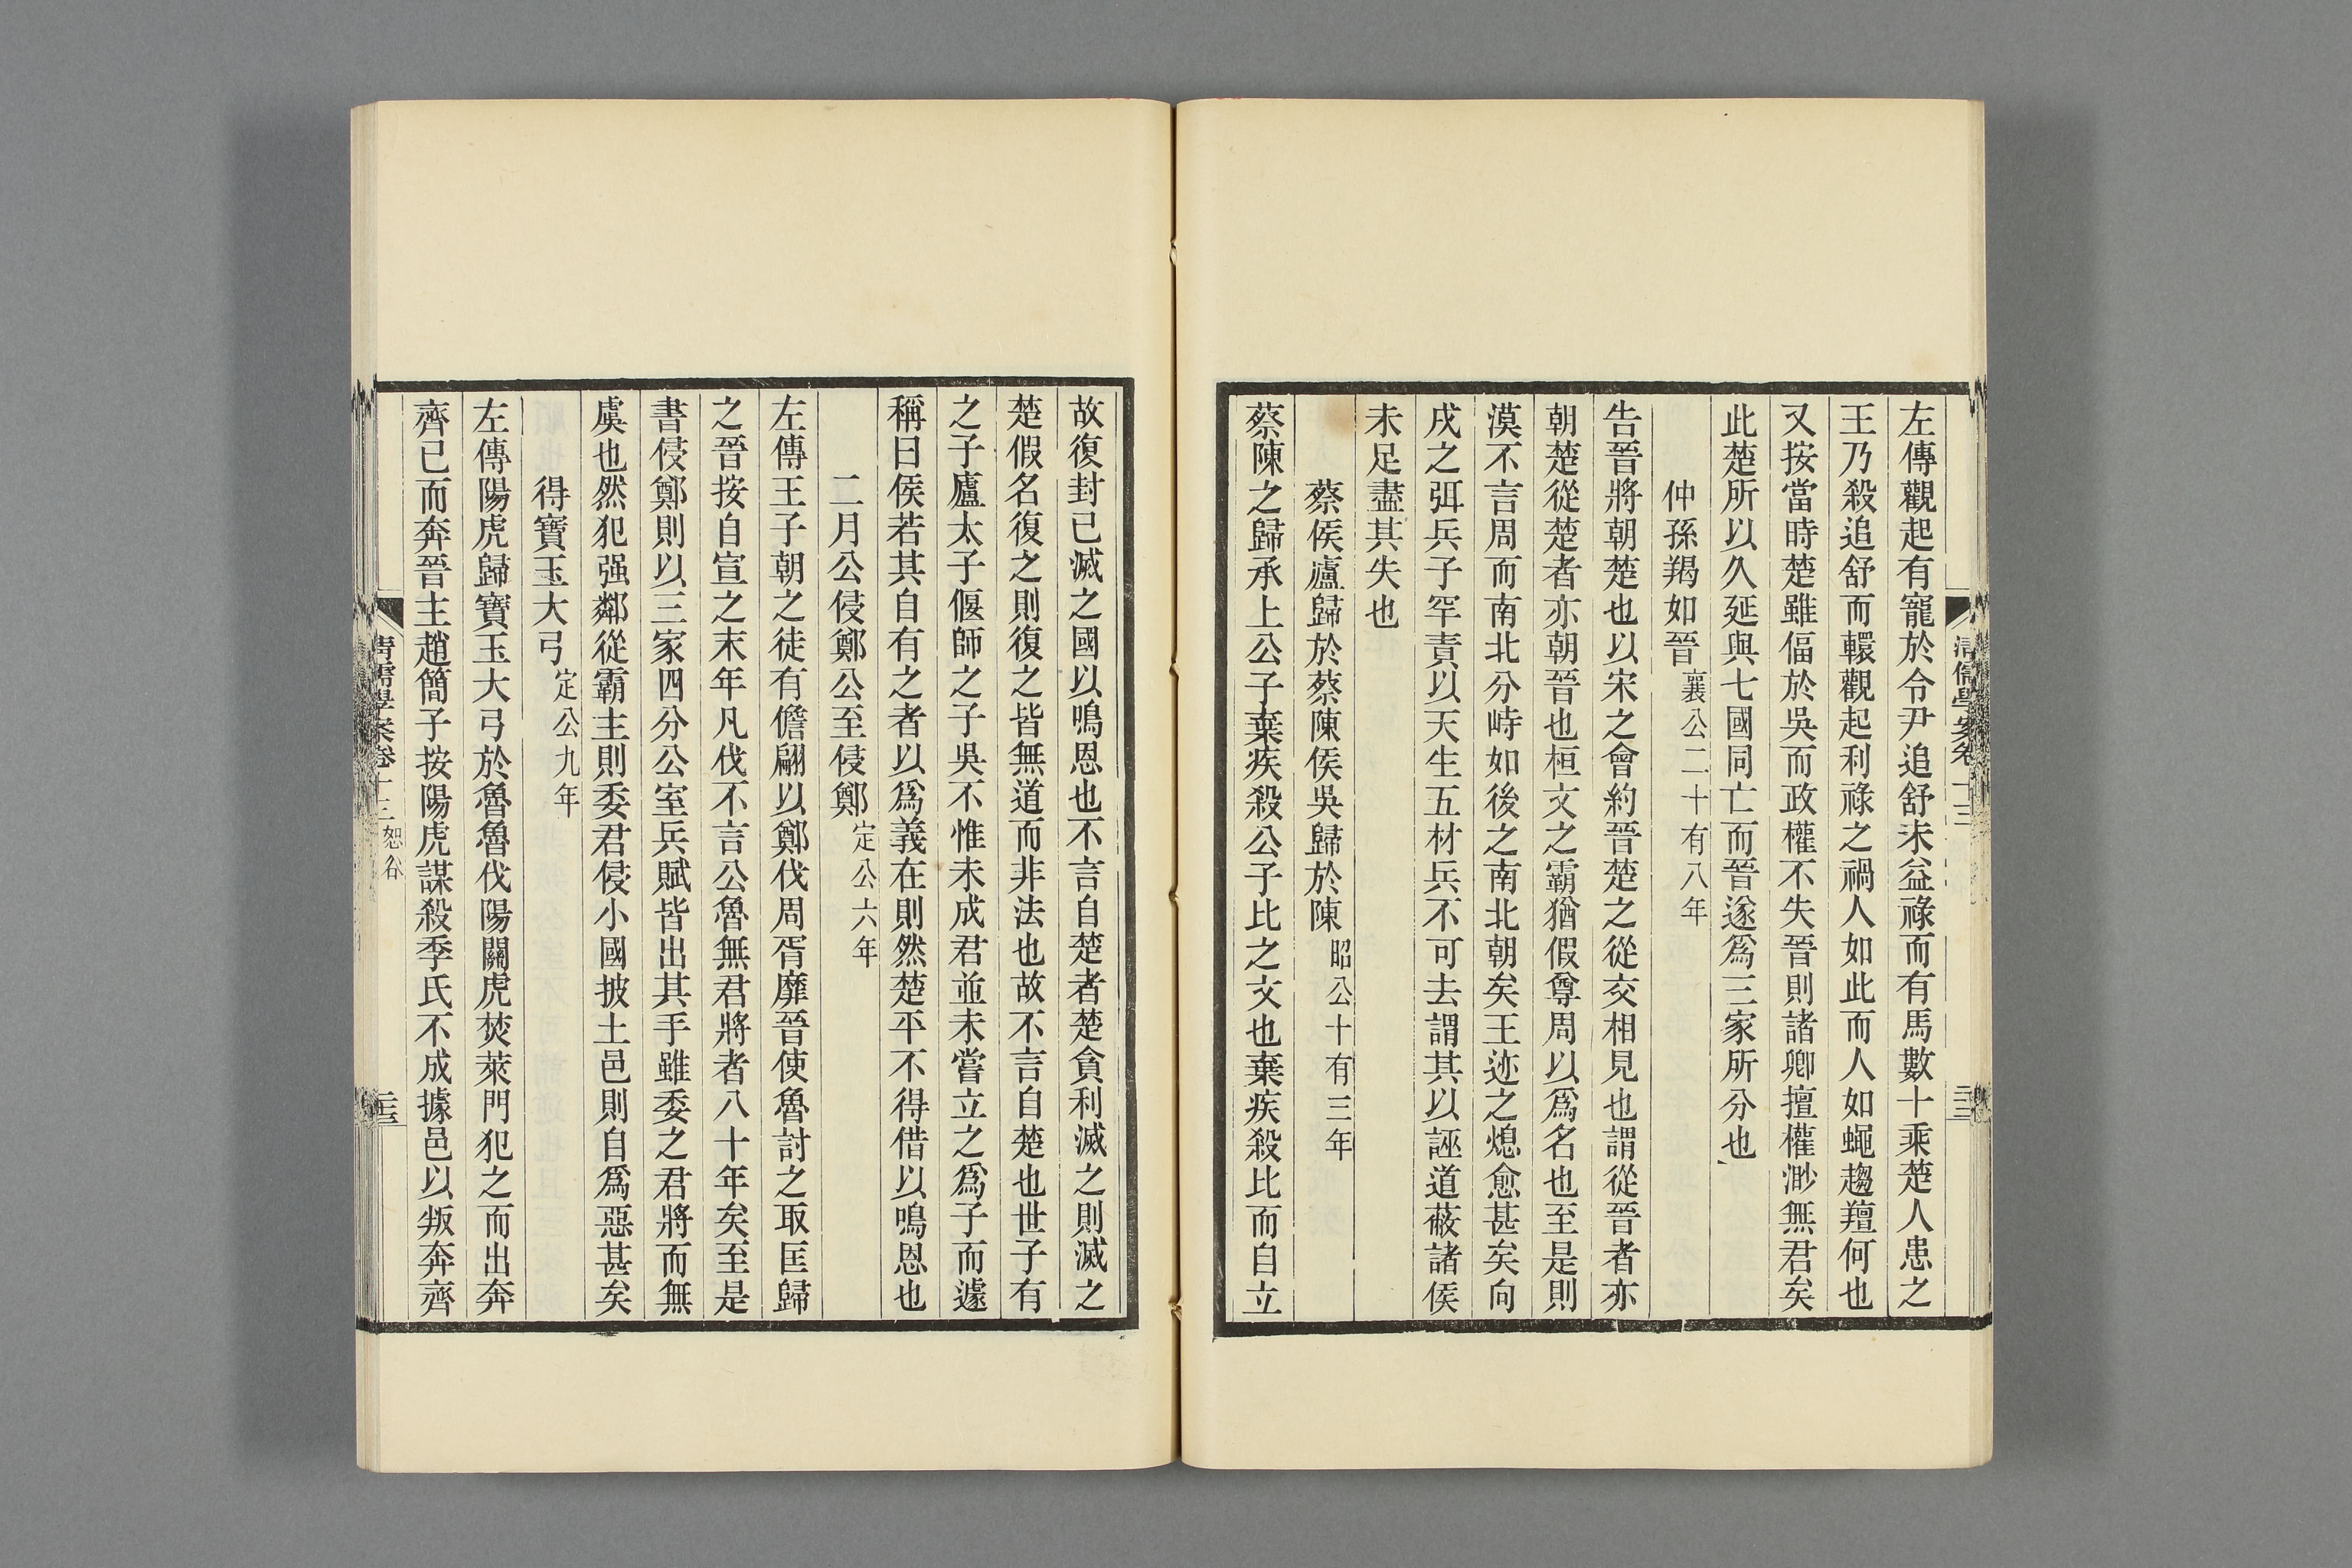 清儒學案卷十三
左傳觀起有寵於令尹追舒未益祿而有馬數十乘楚人患之
王乃殺追舒而轘觀起利祿之禍人如此而人如蠅趨羶何也
又按當時楚雖偪於吳而政權不失晉則諸卿擅權渺無君矣
此楚所以久延與七國同亡而晉遂爲三家所分也
仲孫羯如晉襄公二十有八年
告晉將朝楚也以宋之會約晉楚之從交相見也謂從晉者亦
朝楚從楚者亦朝晉也桓文之霸猶假尊周以爲名也至是則
漠不言周而南北分峙如後之南北朝矣王迹之熄愈甚矣向
戌之弭兵子罕責以天生五材兵不可去謂其以誣道蔽諸侯
未足盡其失也
蔡侯廬歸於蔡陳侯吳歸於陳昭公十有三年
蔡陳之歸承上公子棄疾殺公子比之文也棄疾殺比而自立
故復封已滅之國以鳴恩也不言自楚者楚貪利滅之則滅之
楚假名復之則復之皆無道而非法也故不言自楚也世子有
之子廬太子偃師之子吳不惟未成君並未嘗立之爲子而遽
稱曰侯若其自有之者以爲義在則然楚平不得借以鳴恩也
二月公侵鄭公至侵鄭定公六年
左傳王子朝之徒有儋翩以鄭伐周胥靡晉使魯討之取匡歸
之晉按自宣之末年凡伐不言公魯無君將者八十年矣至是
書侵鄭則以三家四分公室兵賦皆出其手雖委之君將而無
虞也然犯强鄰從霸主則委君侵小國披土邑則自爲惡甚矣
得寶玉大弓定公九年
左傳陽虎歸寶玉大弓於魯魯伐陽關虎焚萊門犯之而出奔
齊已而奔晉主趙簡子按陽虎謀殺季氏不成據邑以叛奔齊
清儒學案卷十三 恕谷